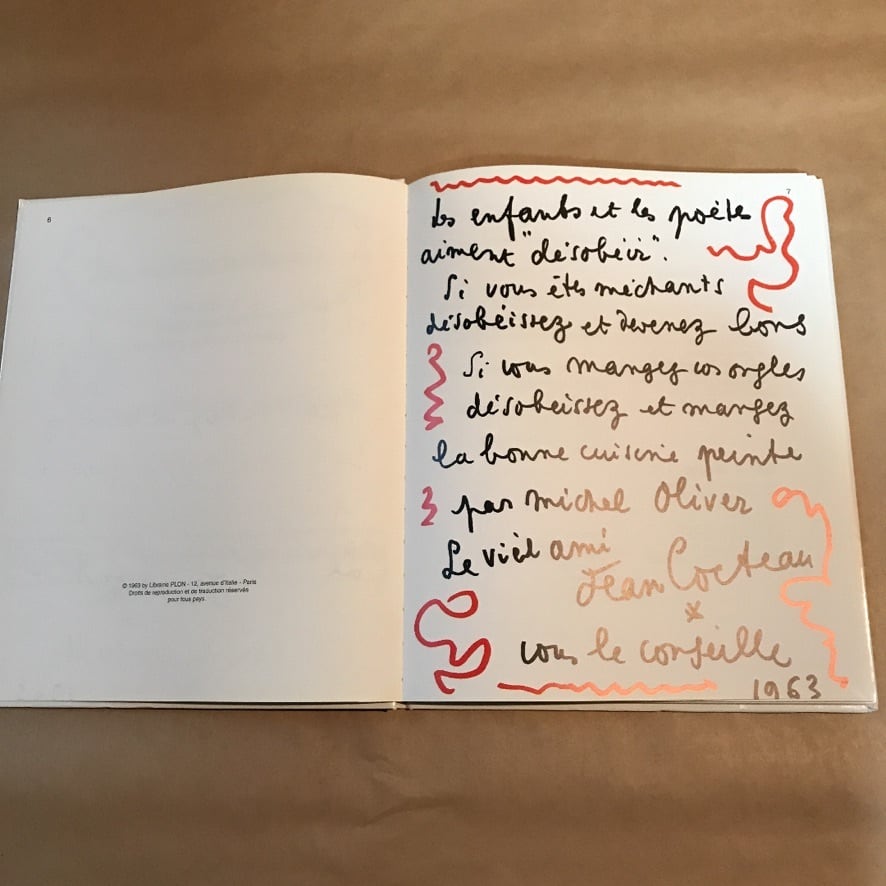 6
© 1963 by Librairie PLON - 12, avenue d'Italie - Paris
Droits de reproduction et de traduction réservés
pour tous pays.
7
Les enfants et les poètes
aiment "désobéir".
Si vous êtes méchants
désobéissez et devenez bons
Si vous mangez vos ongles
désobeissez et mangez
la bonne cuisine peinte
par Michel Oliver
Le vieil ami
Jean Cocteau
*
vous le conseille
1963